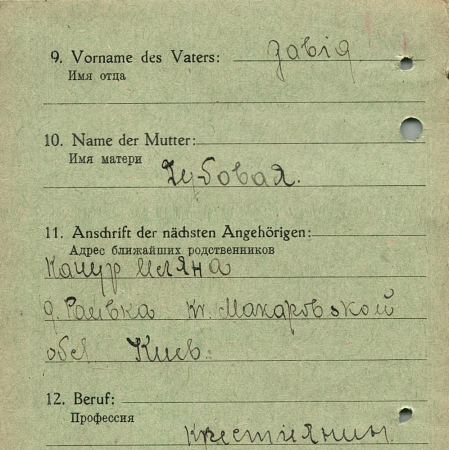 9. Vorname des Vaters: Давид
Имя отца
10. Name der Mutter:
Имя матери
Чубовая.
11. Anschrift der nächsten Angehörigen:
Адрес ближайших родственников
Качур Иляна
д. Раивка Макаровской
обл Киев.
12. Beruf:
Профессия
Крестиянин.